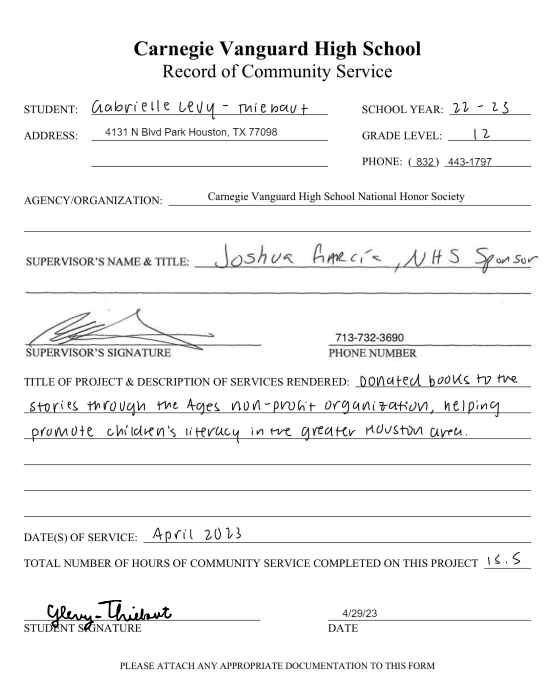 Carnegie Vanguard High School
Record of Community Service
STUDENT: Gabrielle Levy - Thiebaut SCHOOL YEAR: 22 - 23
ADDRESS: 4131 N Blvd Park Houston, TX 77098 GRADE LEVEL: 12
PHONE: ( 832) 443-1797
AGENCY/ORGANIZATION: Carnegie Vanguard High School National Honor Society
SUPERVISOR'S NAME & TITLE: Joshua García, NHS Sponsor
713-732-3690
SUPERVISOR'S SIGNATURE PHONE NUMBER
TITLE OF PROJECT & DESCRIPTION OF SERVICES RENDERED: Donated books to the
stories through the Ages non-profit organization, helping
promote children's literacy in the greater Houston area.
DATE(S) OF SERVICE: April 2023
TOTAL NUMBER OF HOURS OF COMMUNITY SERVICE COMPLETED ON THIS PROJECT 15.5
GLevy-Thiebaut 4/29/23
STUDENT SIGNATURE DATE
PLEASE ATTACH ANY APPROPRIATE DOCUMENTATION TO THIS FORM